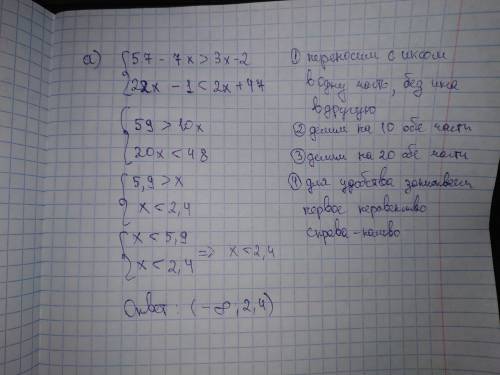 а) 57 - 7x > 3x - 2
22x - 1 < 2x + 47
59 > 10x
20x < 48
5,9 > x
x < 2,4
x < 5,9
x < 2,4 => x < 2,4
Ответ: (-∞; 2,4)
① переносим с иксом
в одну часть, без икса
в другую
② делим на 10 обе части
③ делим на 20 обе части
④ для удобства записываем
первое неравенство
справа-налево